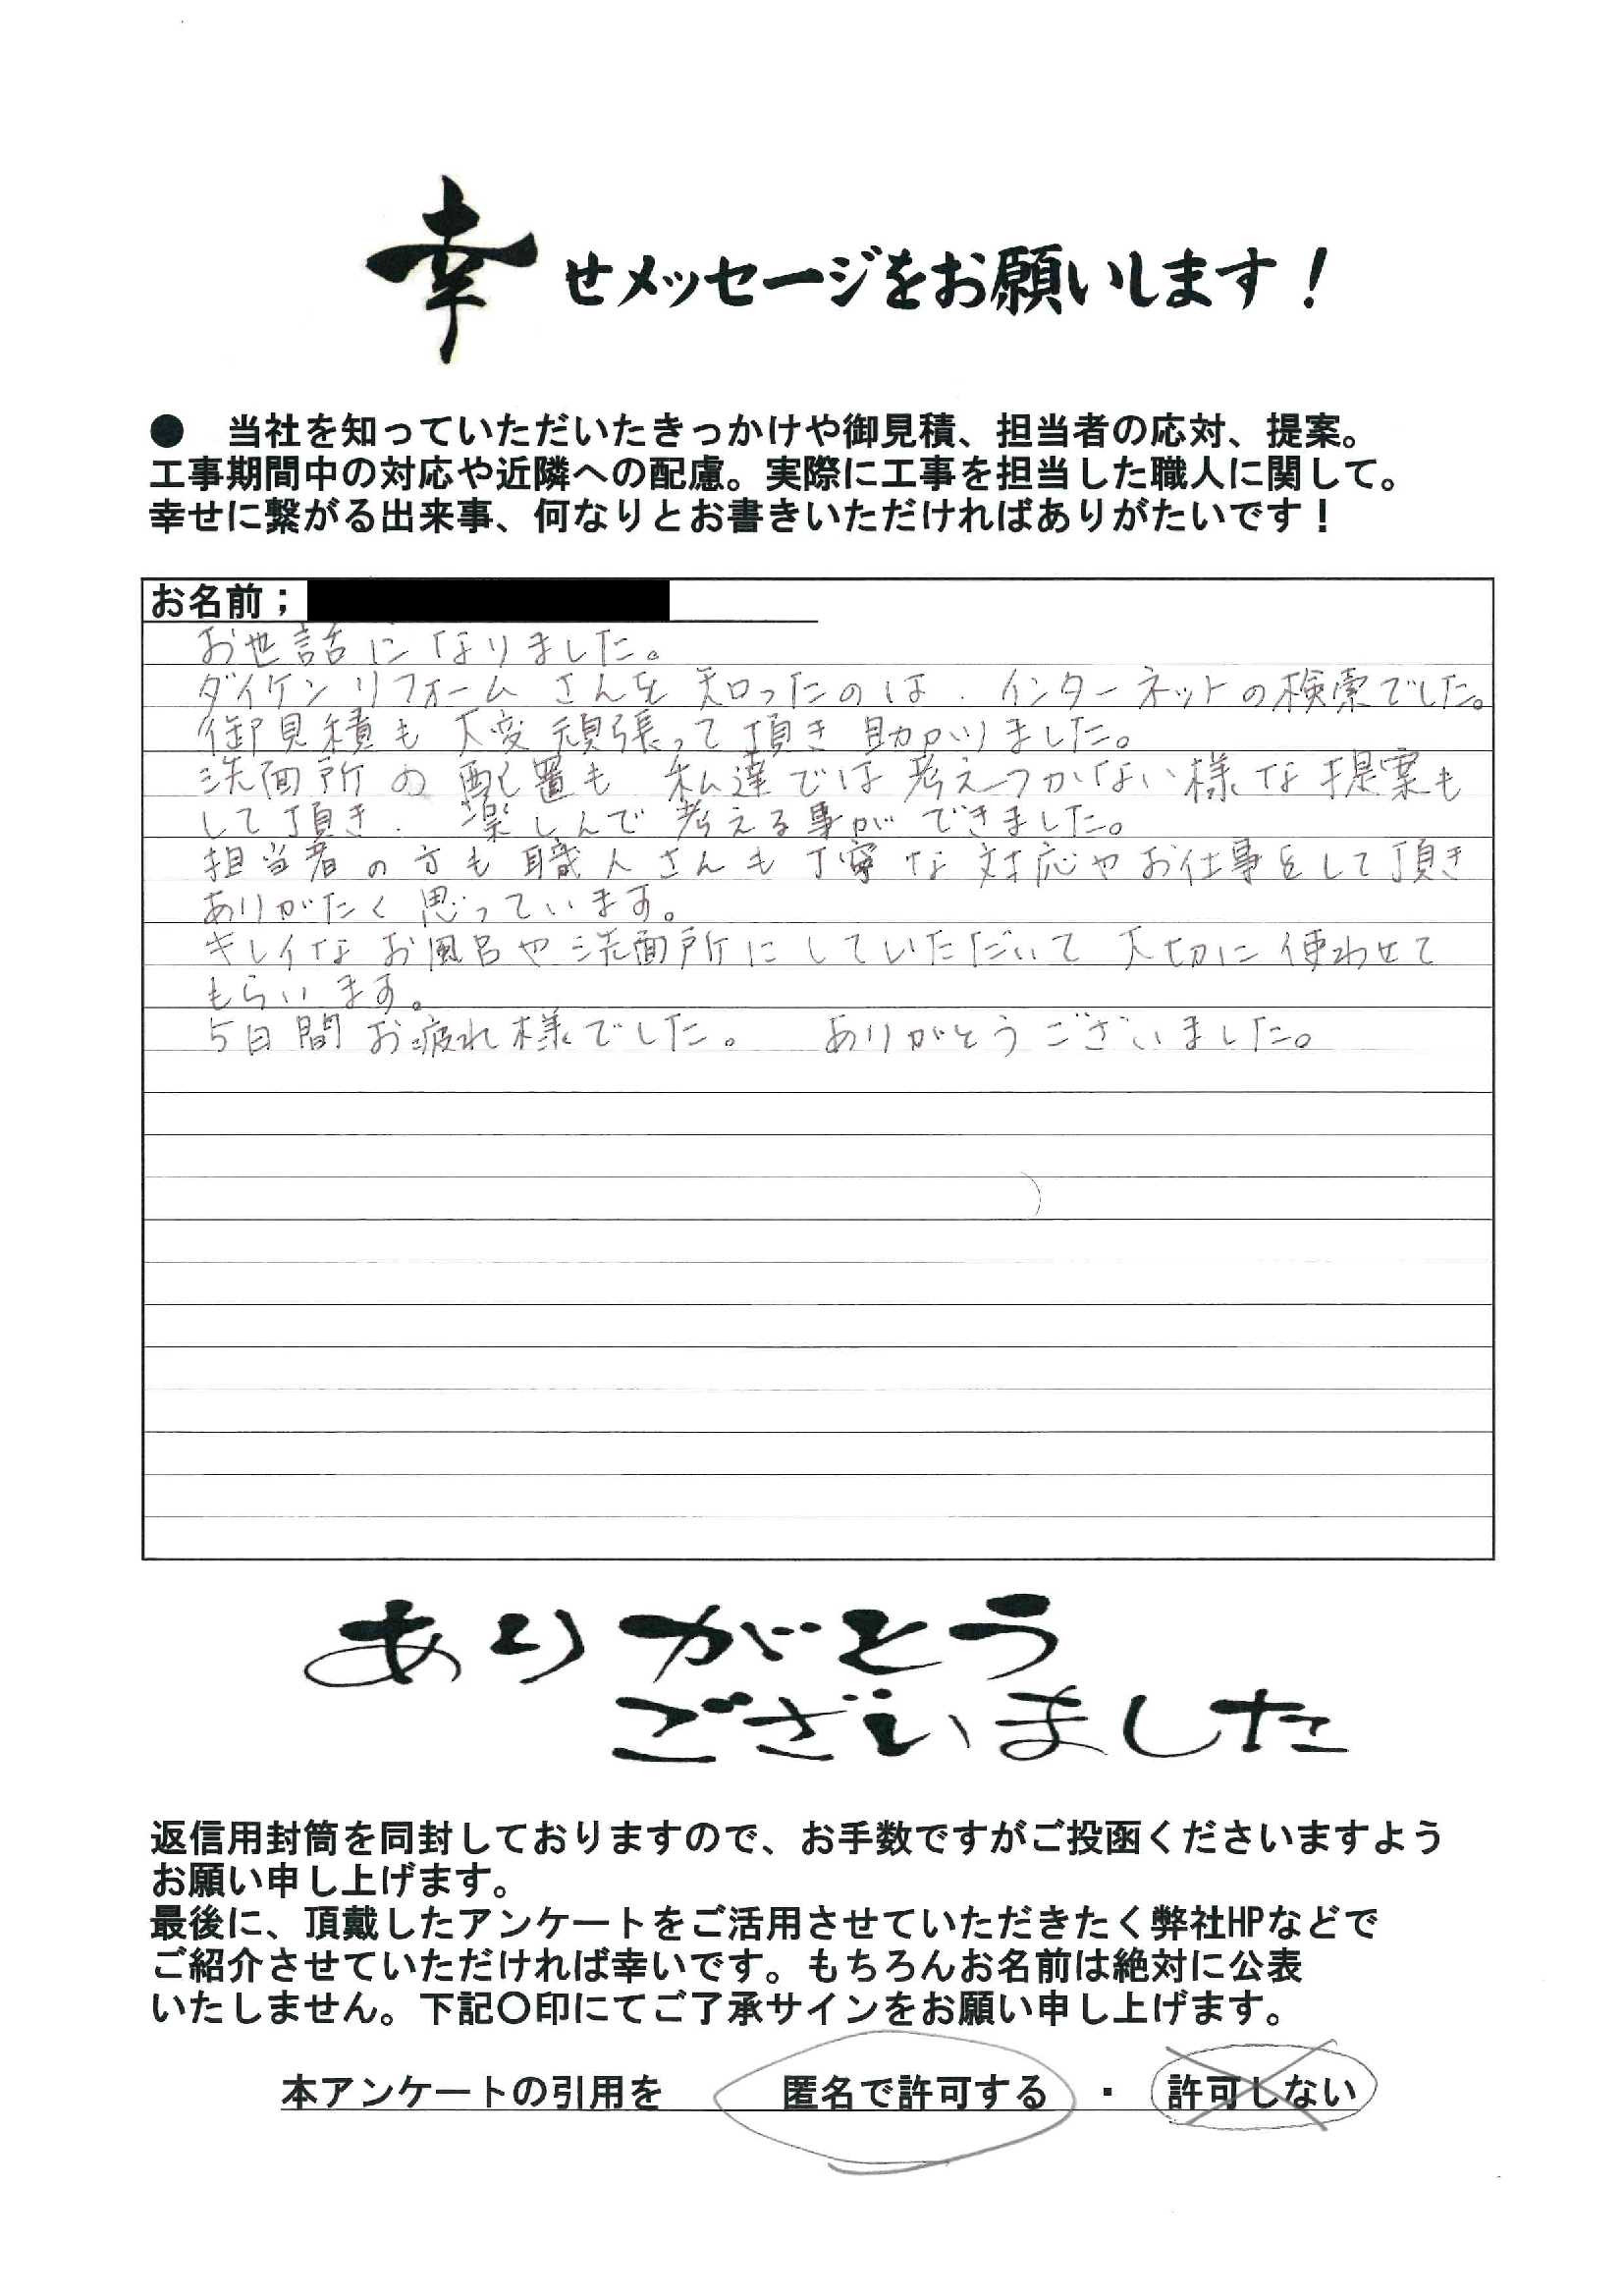 幸せメッセージをお願いします！
●　当社を知っていただいたきっかけや御見積、担当者の応対、提案。
工事期間中の対応や近隣への配慮。実際に工事を担当した職人に関して。
幸せに繋がる出来事、何なりとお書きいただければありがたいです！
お名前；
お世話になりました。
ダイケンリフォームさんを知ったのは、インターネットの検索でした。
御見積も大変頑張って頂き助かりました。
洗面所の配置も私達では考えつかない様な提案も
して頂き、楽しんで考える事ができました。
担当者の方も職人さんも丁寧な対応やお仕事をして頂き
ありがたく思っています。
キレイなお風呂や洗面所にしていただいて大切に使わせて
もらいます。
5日間お疲れ様でした。　ありがとうございました。
ありがとう
ございました
返信用封筒を同封しておりますので、お手数ですがご投函くださいますよう
お願い申し上げます。
最後に、頂戴したアンケートをご活用させていただきたく弊社HPなどで
ご紹介させていただければ幸いです。もちろんお名前は絶対に公表
いたしません。下記〇印にてご了承サインをお願い申し上げます。
本アンケートの引用を　　匿名で許可する　・　許可しない